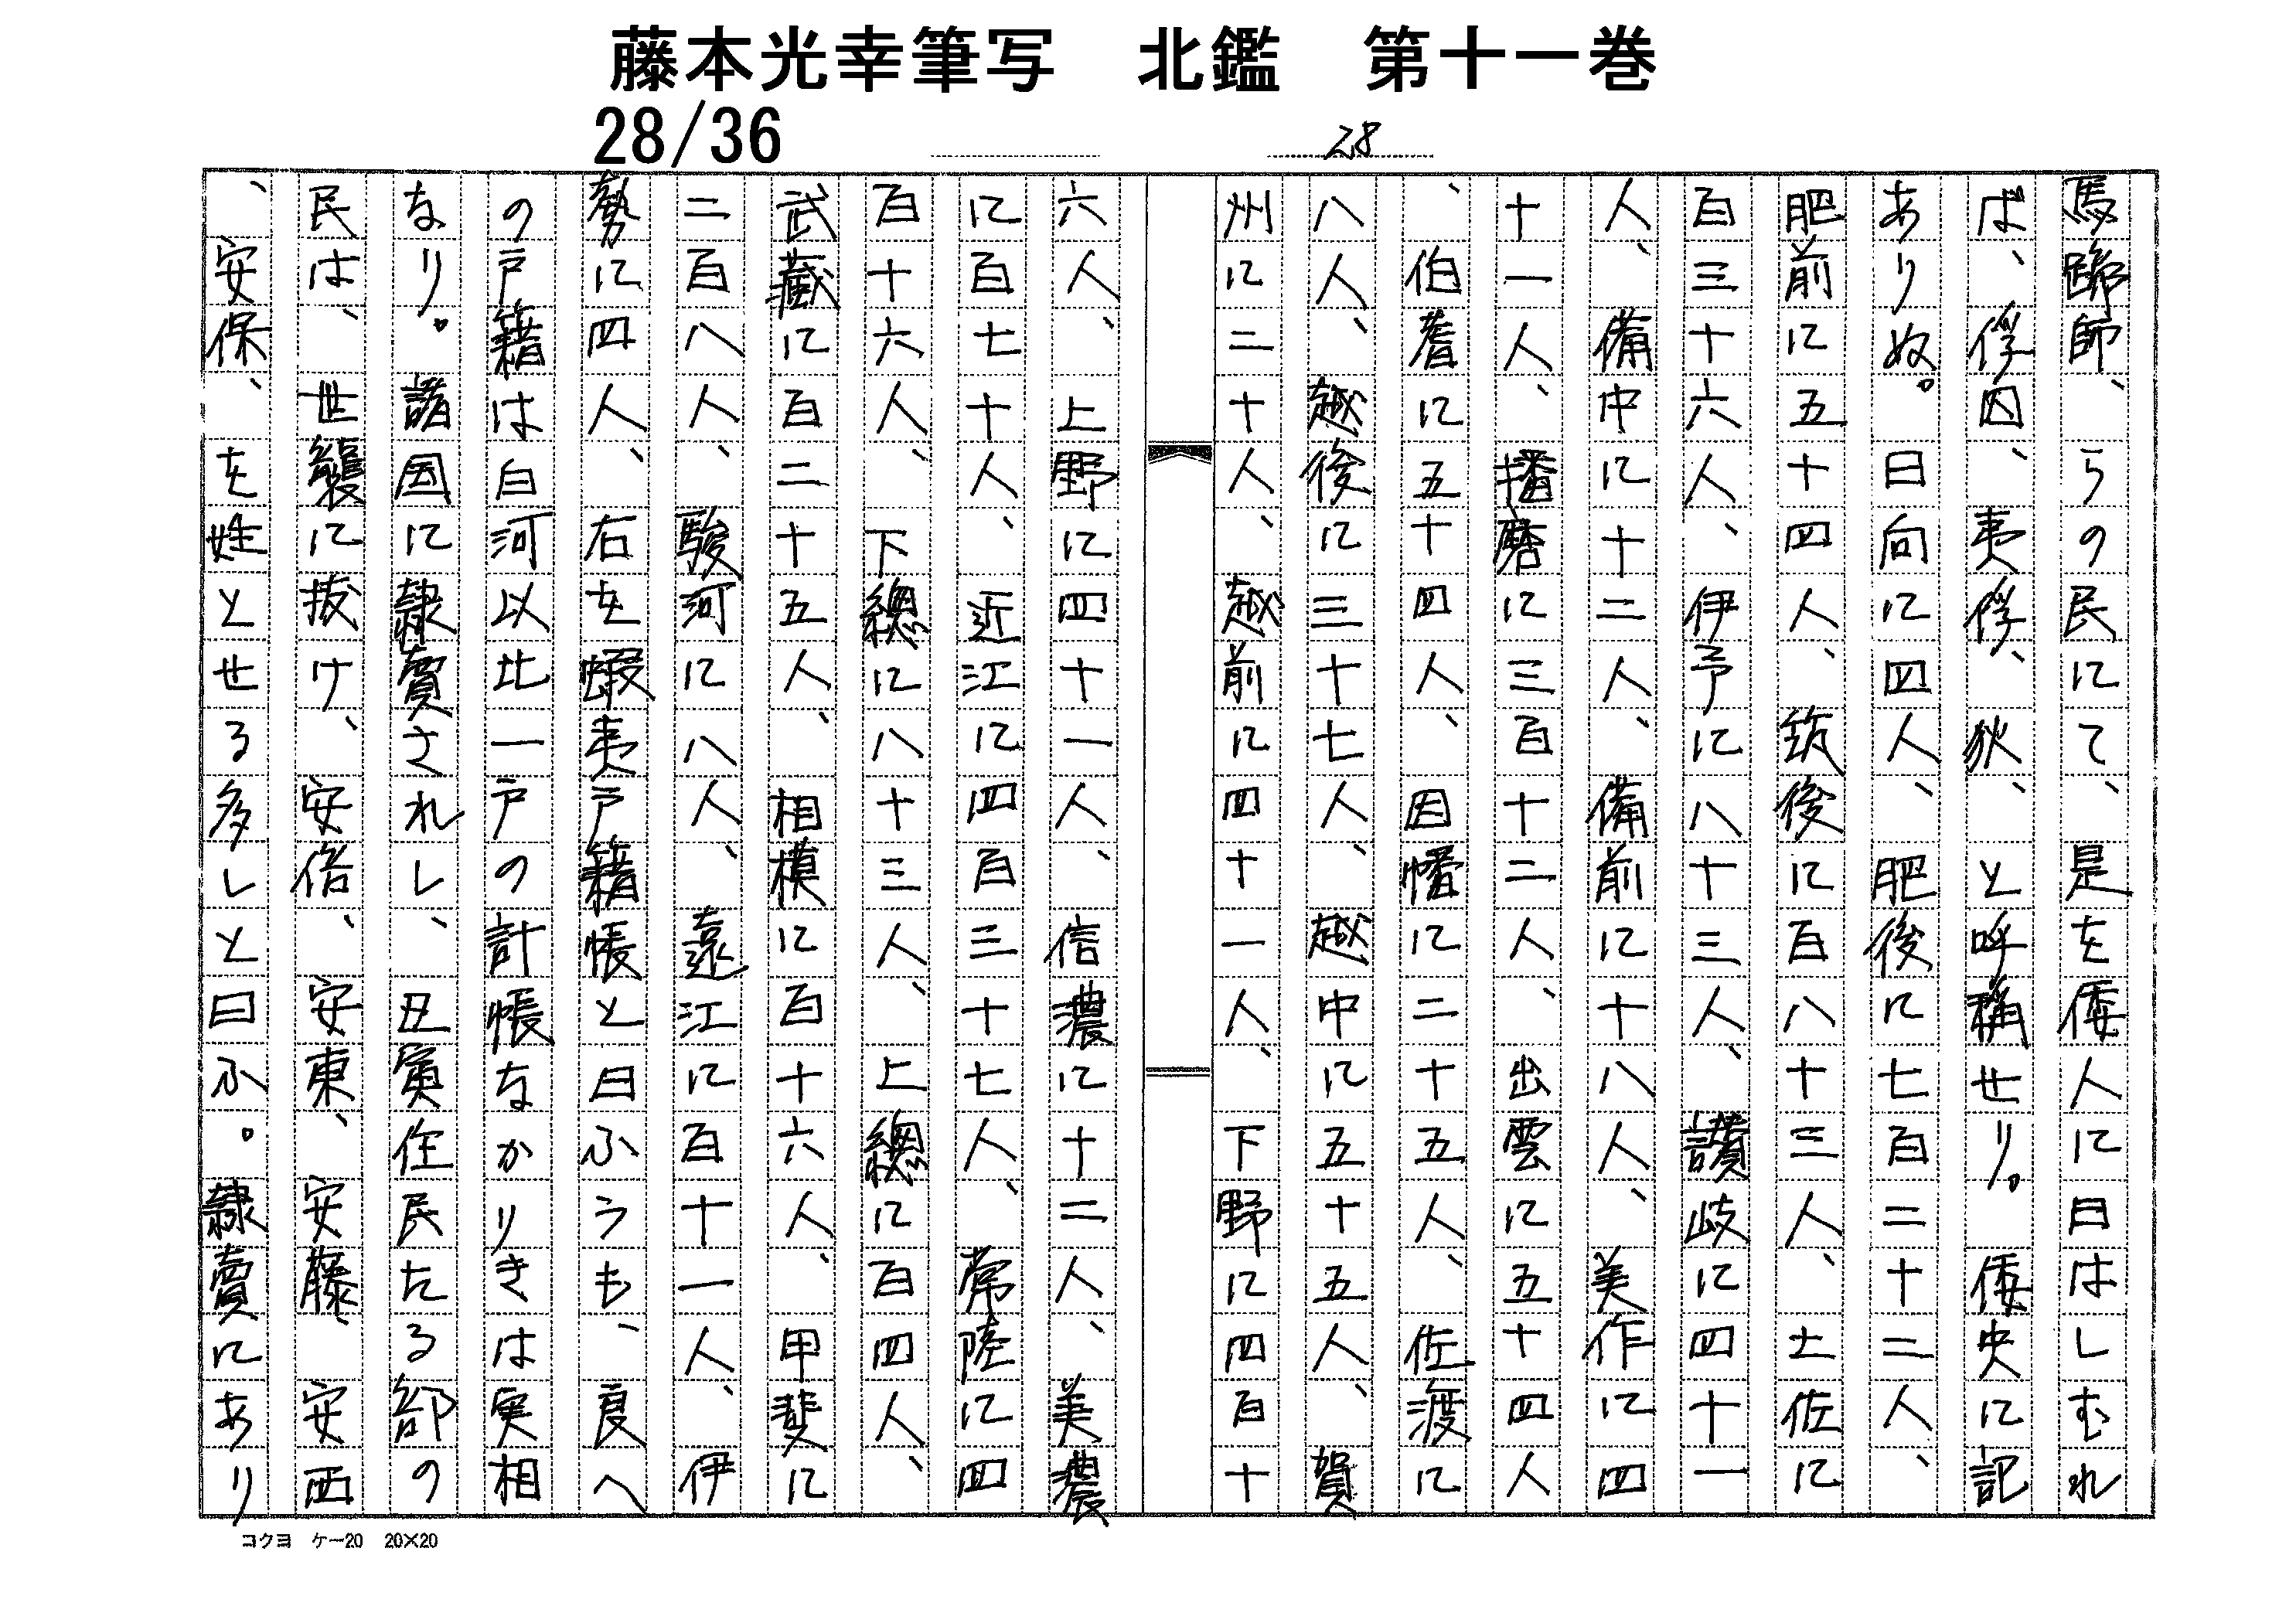 藤本光幸筆写　北鑑　第十一巻
28/36
28
馬蹄師、らの民にて、是を倭人に曰はしむれ
ば、俘囚、夷俘、狄、と呼稱せり。倭史に記
ありぬ。日向に四人、肥後に七百二十二人、
肥前に五十四人、筑後に百八十三人、土佐に
百三十六人、伊予に八十三人、讃岐に四十一
人、備中に十二人、備前に十八人、美作に四
十一人、播磨に三百十二人、出雲に五十四人
、伯耆に五十四人、因幡に二十五人、佐渡に
八人、越後に三十七人、越中に五十五人、賀
州に二十人、越前に四十一人、下野に四百十
六人、上野に四十一人、信濃に十二人、美濃
に百七十人、近江に四百三十七人、常陸に四
百十六人、下總に八十三人、上總に百四人、
武藏に百二十五人、相模に百十六人、甲斐に
二百八人、駿河に八人、遠江に百十一人、伊
勢に四人、右を蝦夷戸籍帳と曰ふうも、良へ
の戸籍は白河以北一戸の計帳なかりきは実相
なり。諸国に隷賣されし、丑寅住民たる部の
民は、世襲に拔け、安倍、安東、安藤、安西
、安保、を姓とせる多しと曰ふ。隷賣にあり
コクヨ　ケー20　20×20